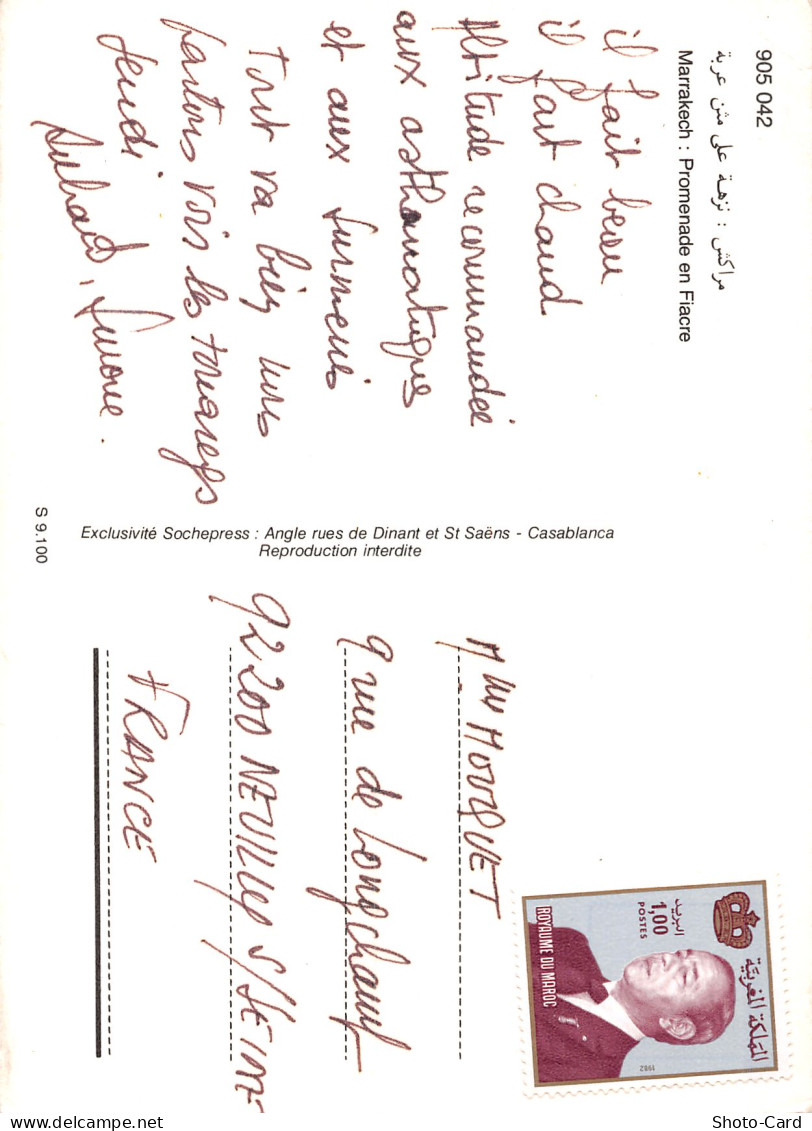 905 042
مراكش : نزهة على متن عربة
Marrakech : Promenade en Fiacre
il fait beau
il fait chaud
Altitude recommandée
aux asthmatiques
et aux surmenés
Tout va bien nous
partons voir les touaregs
Jeudi
Simone.
S 9.100
Exclusivité Sochepress : Angle rues de Dinant et St Saëns - Casablanca
Reproduction interdite
MOUQUET
9 rue de Longchamp
92.200 NEUILLY S/SEINE
FRANCE
المملكة المغربية
البريد
1,00
POSTES
ROYAUME DU MAROC
1982
Shoto-Card